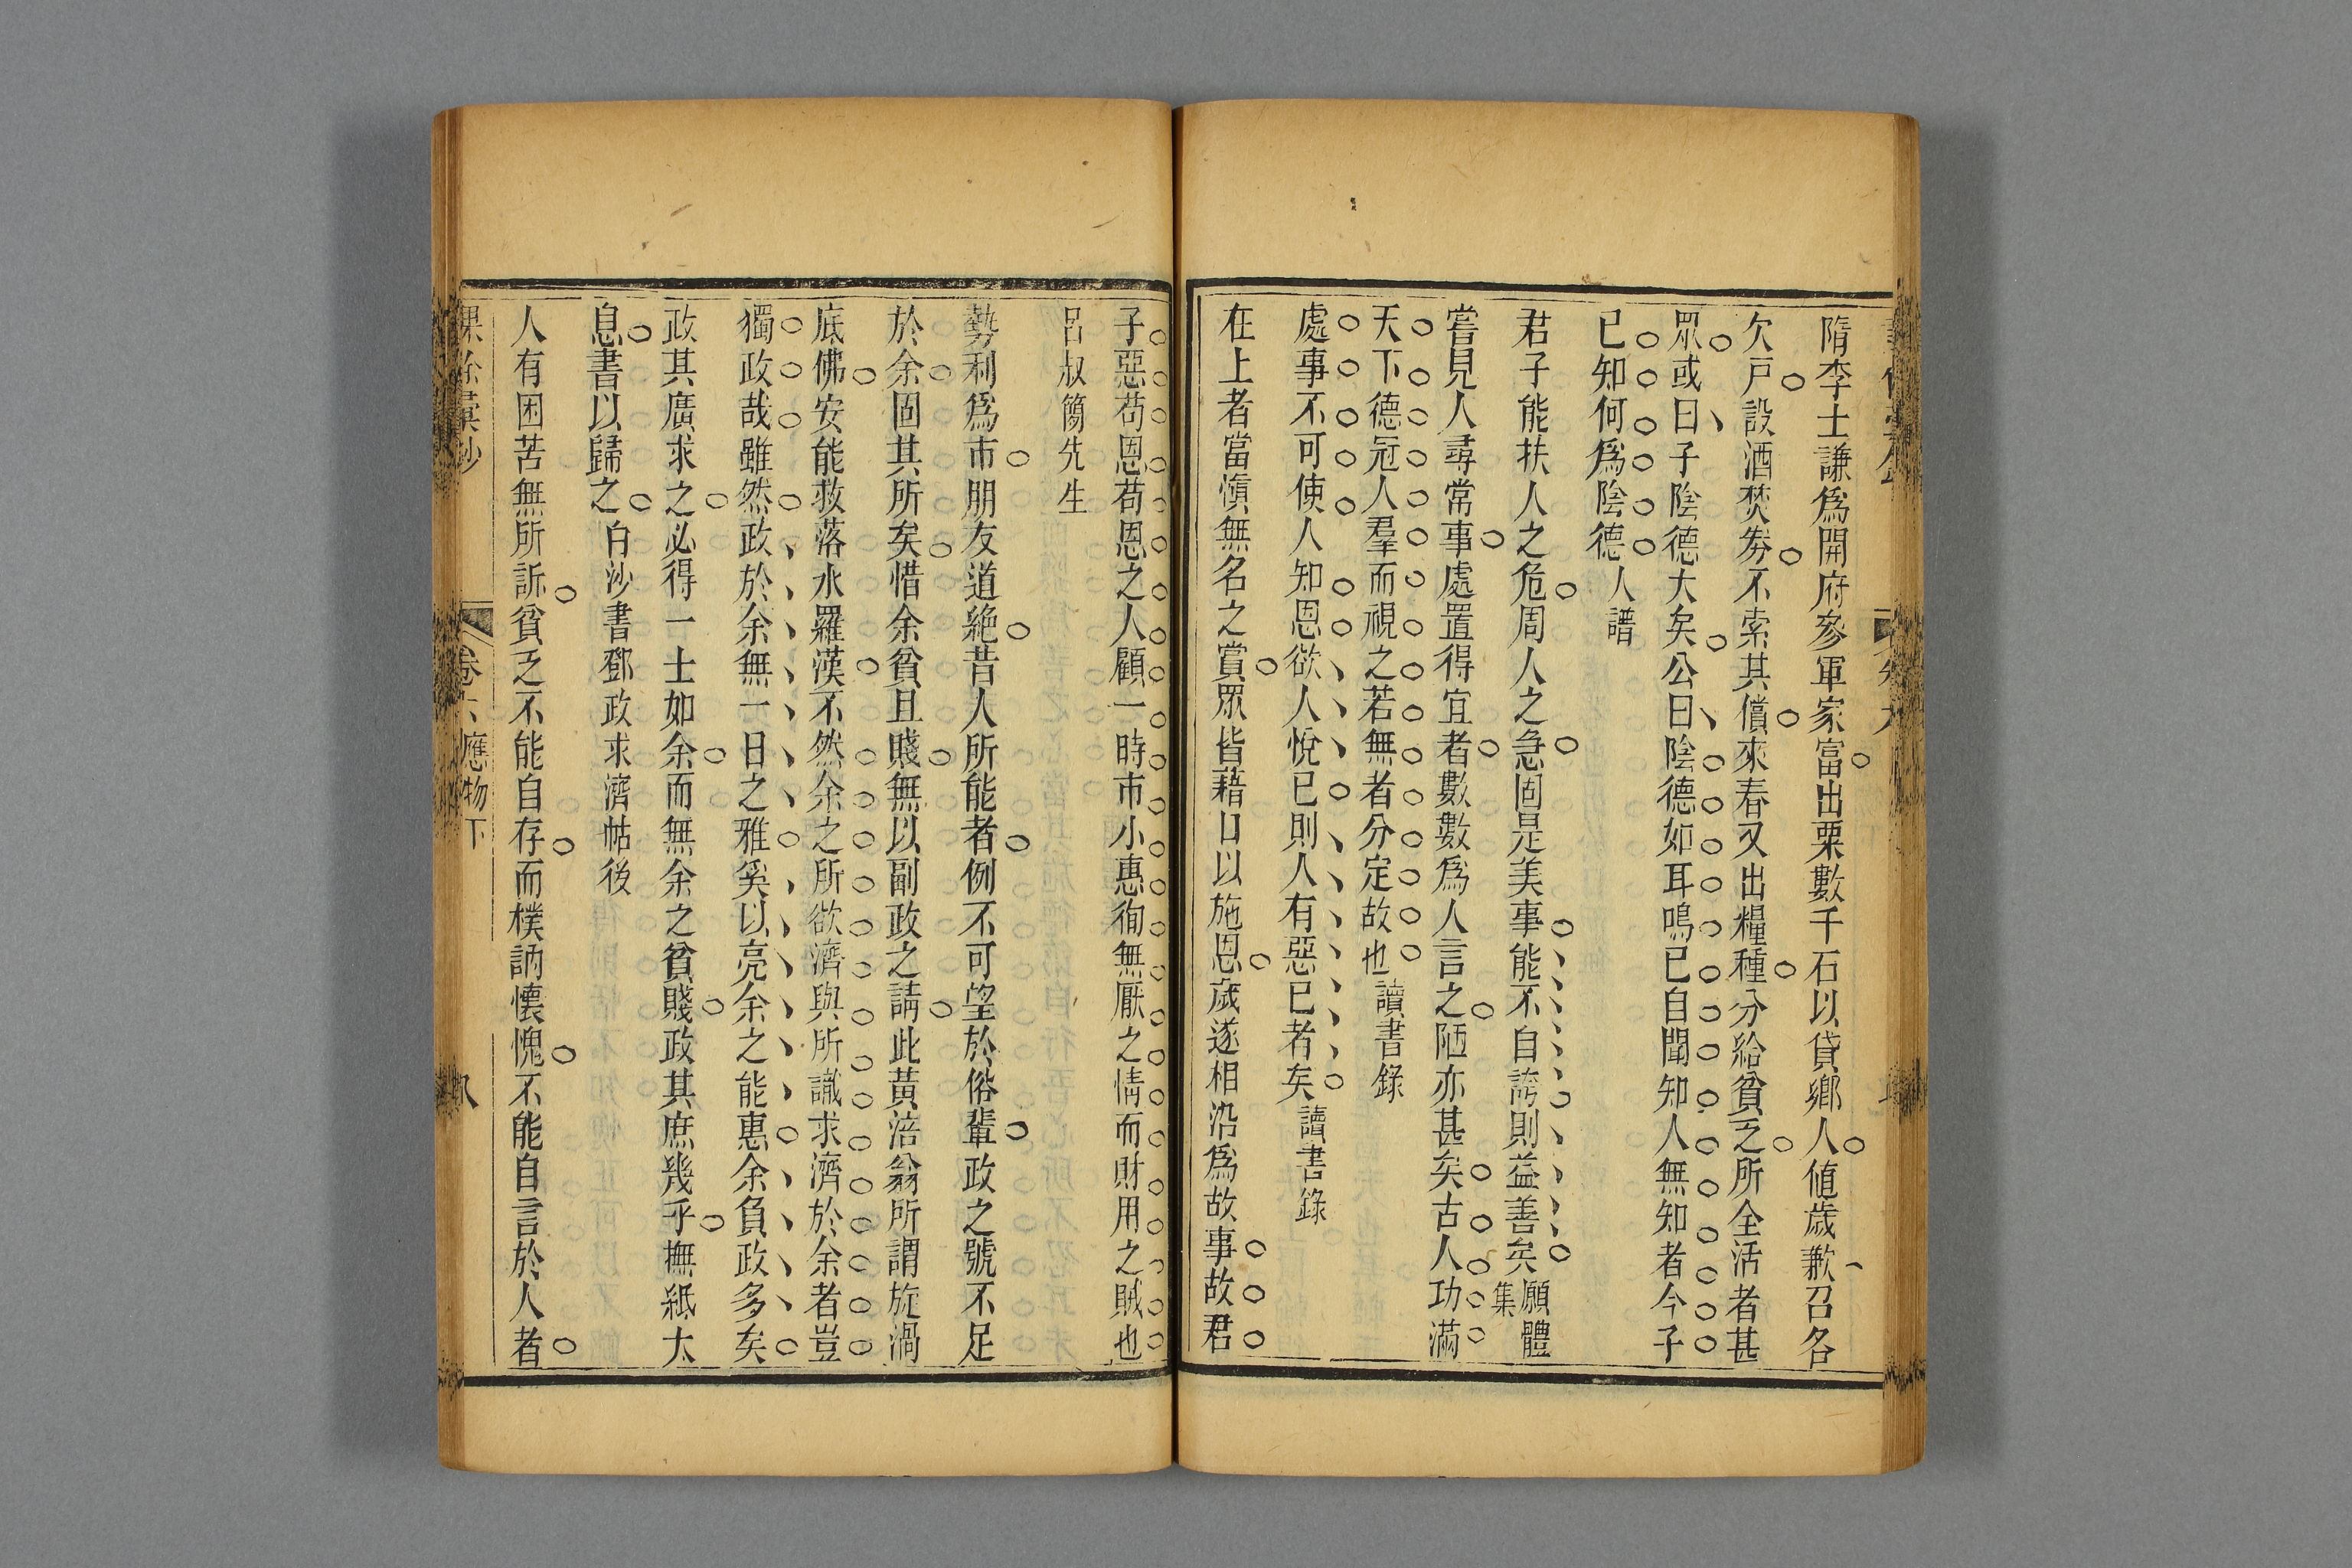 隋李士謙爲開府參軍家富出粟數千石以貸鄉人値歲歉召各
欠戸設酒焚劵不索其償來春又出糧種分給貧乏所全活者甚
眾或曰子陰德大矣公曰陰德如耳鳴已自聞知人無知者今子
已知何爲陰德人譜
君子能扶人之危周人之急固是美事能不自誇則益善矣願體集
嘗見人尋常事處置得宜者數數爲人言之陋亦甚矣古人功滿
天下德冠人羣而視之若無者分定故也讀書錄
處事不可使人知恩欲人悅已則人有惡已者矣讀書錄
在上者當愼無名之賞眾皆藉口以施恩歲遂相沿爲故事故君
子惡苟恩苟恩之人顧一時市小惠徇無厭之情而財用之賊也
呂叔簡先生
勢利爲市朋友道絶昔人所能者例不可望於俗輩政之號不足
於余固其所矣惜余貧且賤無以副政之請此黃涪翁所謂旋渦
底佛安能救落水羅漢不然余之所欲濟與所識求濟於余者豈
獨政哉雖然政於余無一日之雅奚以亮余之能惠余負政多矣
政其廣求之必得一士如余而無余之貧賤政其庶幾乎撫紙太
息書以歸之白沙書鄧政求濟帖後
人有困苦無所訴貧乏不能自存而樸訥懷愧不能自言於人者
卷六應物下